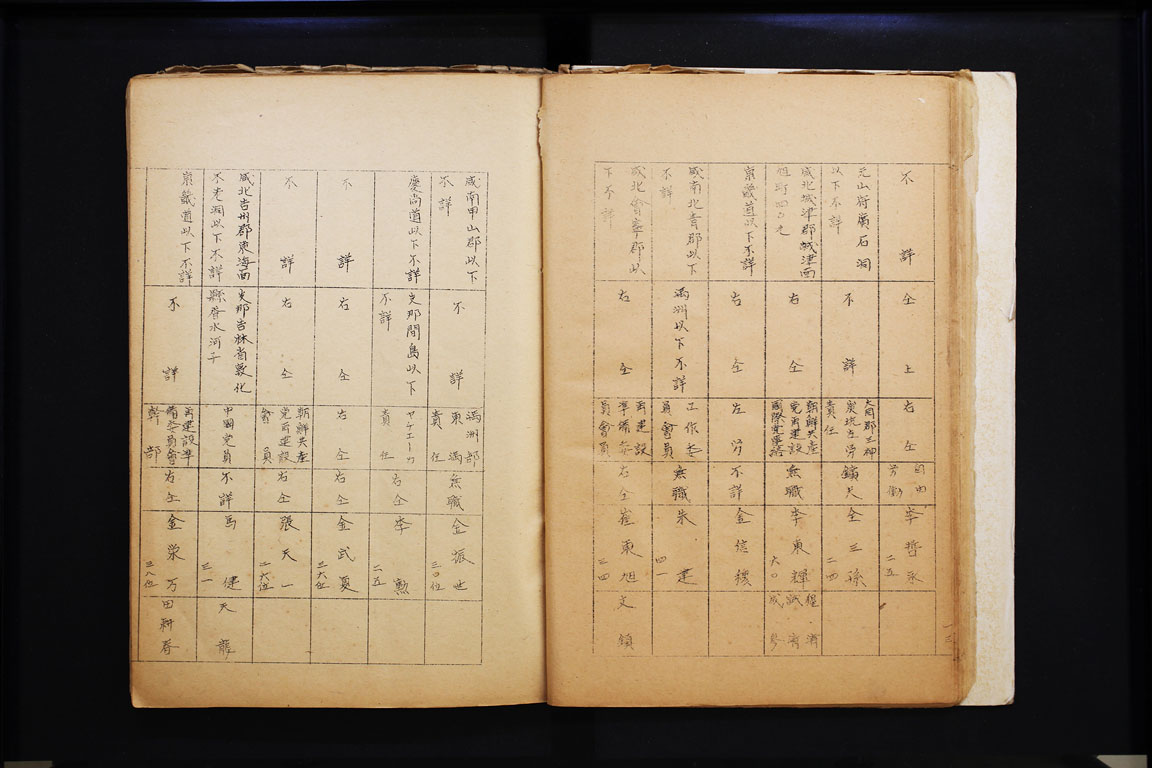 不詳
仝上
右仝
自由
労働
李哲承
二五
元山府廣石洞
以下不詳
不詳
大同郡三神
炭坑在労
責任
鎖夫
仝三孫
二四
咸北城津郡城津面
旭町四〇九
右仝
朝鮮共産
党再建設
無職
李東輝
六〇
京畿道以下不詳
右仝
左労
不詳
金信穰
咸南北青郡以下
不詳
満洲以下不詳
工作委
員會員
無職
朱建
四一
咸北會寧郡以
下不詳
右仝
再建設
準備委
員會員
右仝
崔東旭
三四
文鎮
一三
咸南甲山郡以下
不詳
不詳
満洲部
東満
責任
無職
金振世
三〇位
慶尚道以下不詳
支那間島以下
不詳
ヤチエーカ
責任
右仝
李勲
二五
不詳
右仝
右仝
右仝
金武夏
二六位
不詳
右仝
朝鮮共産
党再建設
右仝
張天一
二六位
咸北吉州郡東海面
不老洞以下不詳
支那吉林省敦化
中國党員
不詳
馬健
三一
天龍
京畿道以下不詳
不詳
再建設準
備委員會
幹部
右仝
金榮万
三八位
田耕春